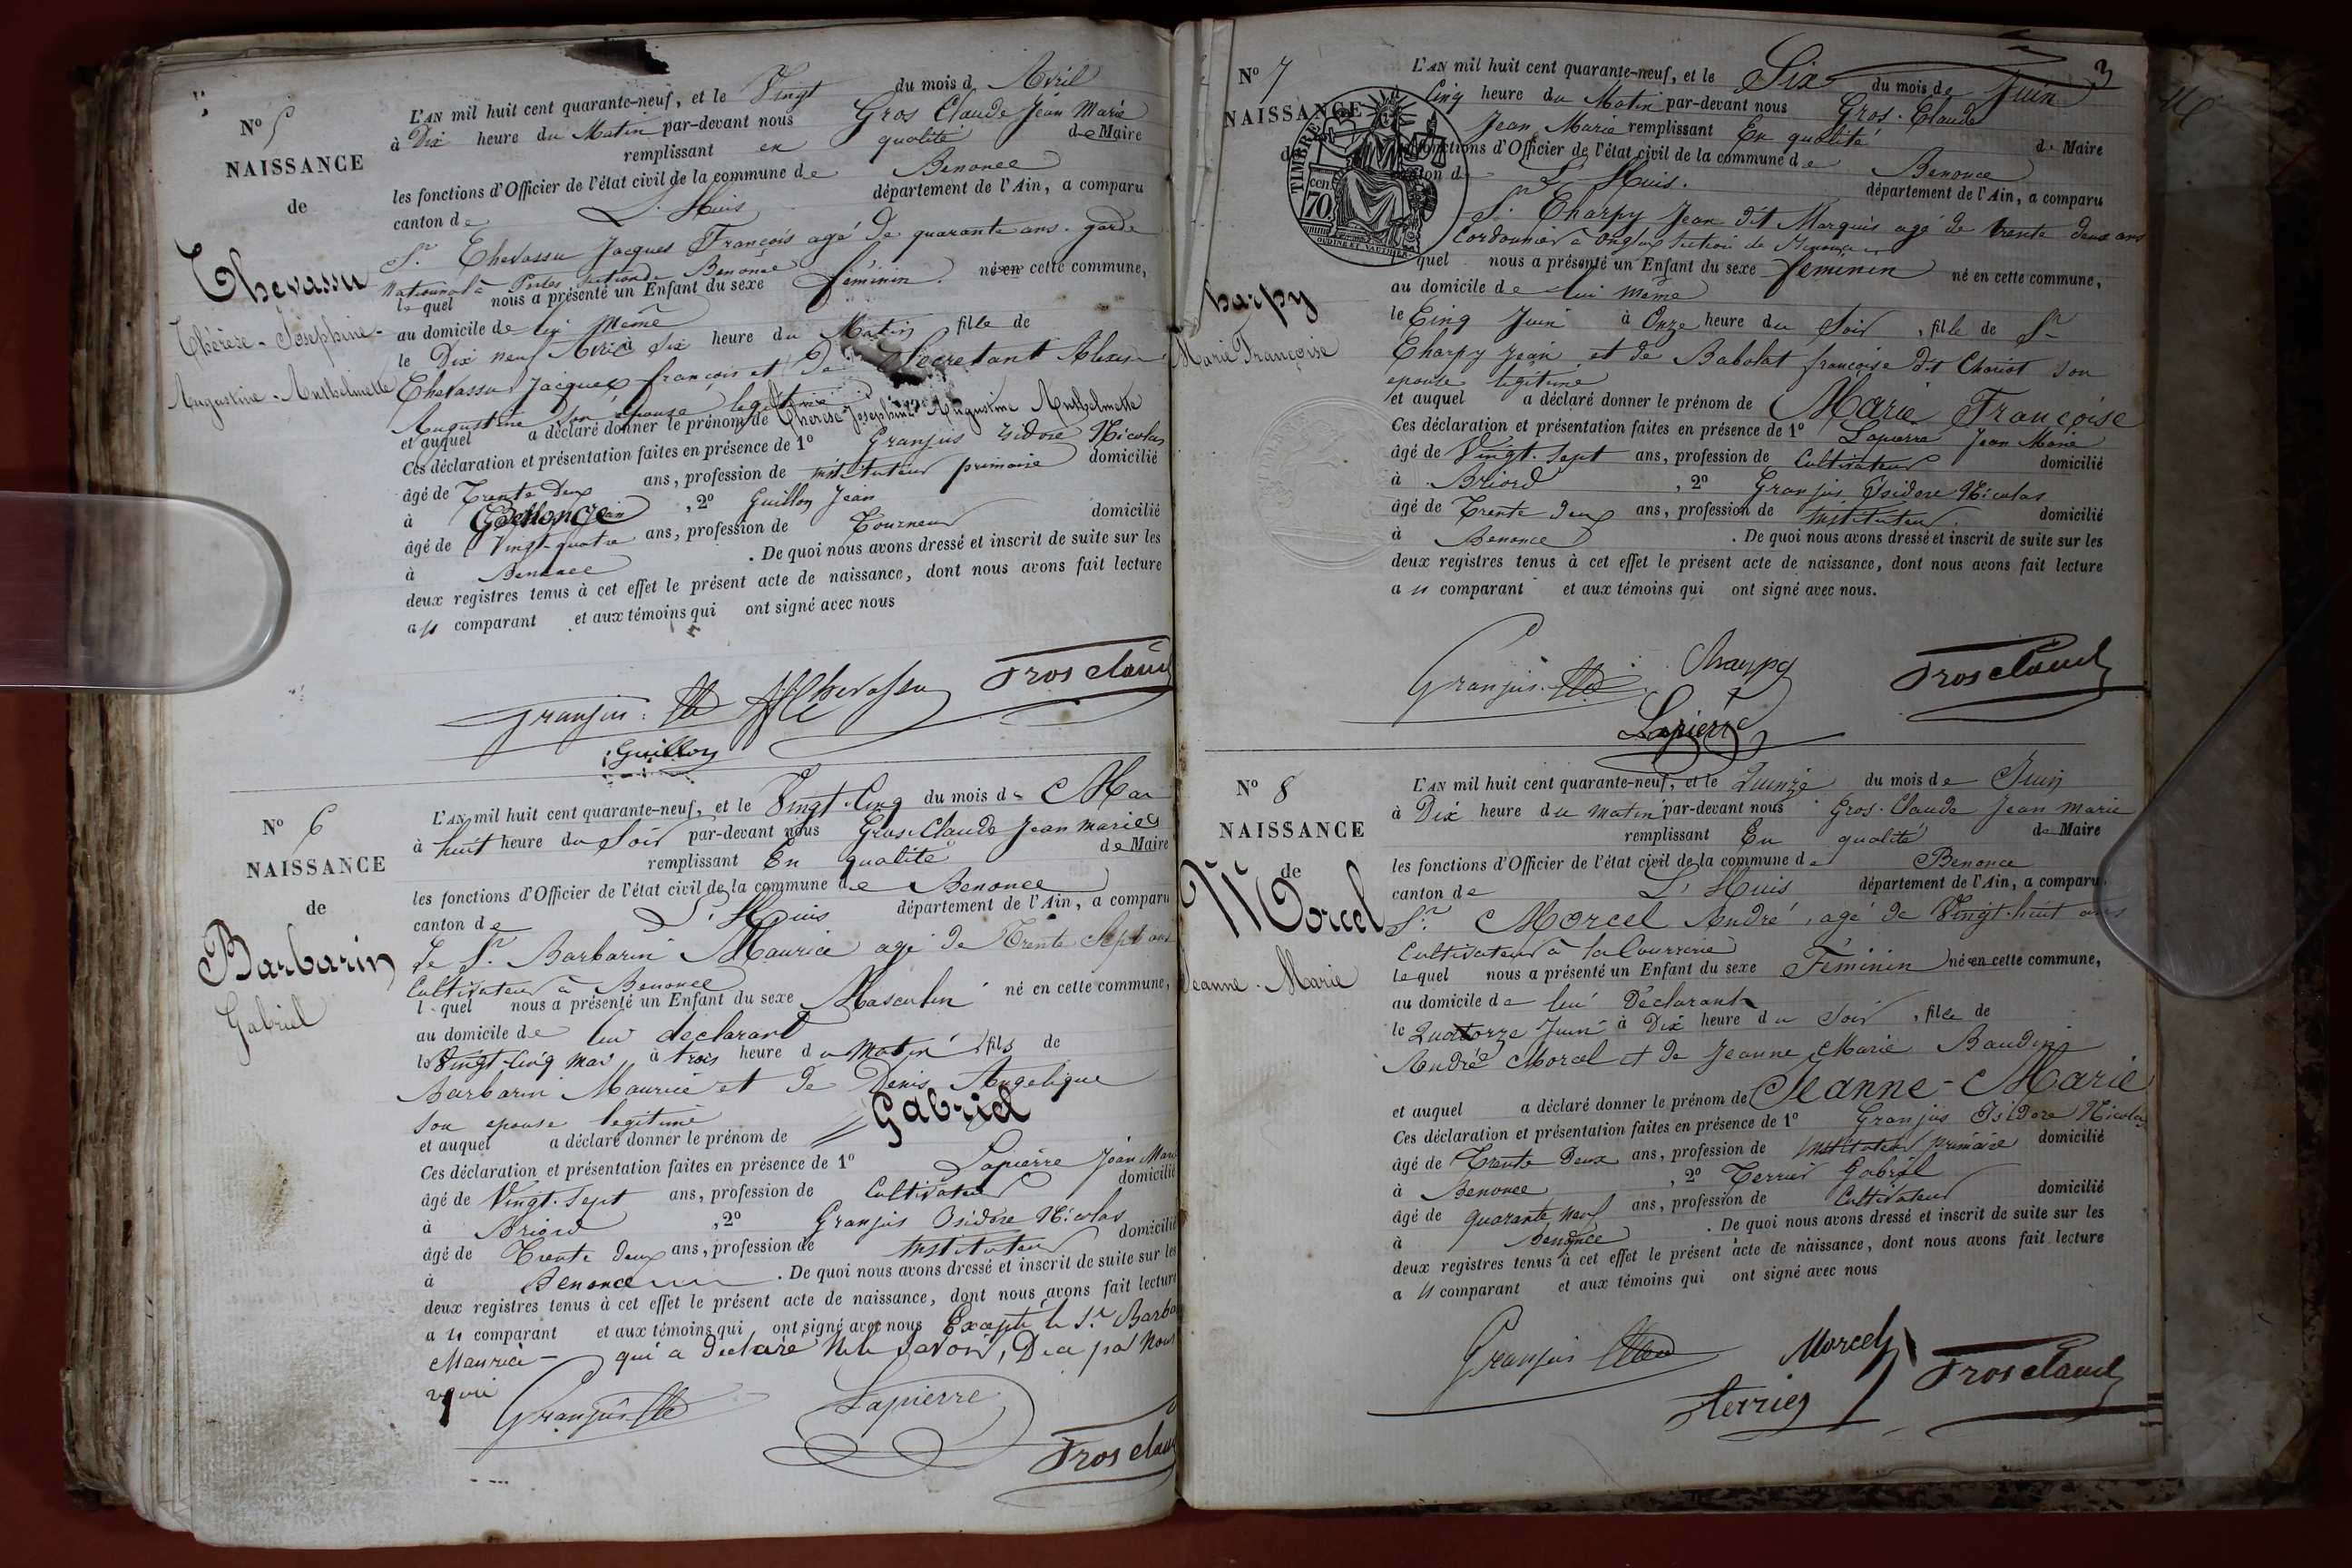 N° 5
NAISSANCE
de
Chevassu
Thérèse - Joséphine -
Augustine - Anthelmette
L'AN mil huit cent quarante-neuf, et le Vingt du mois d Avril
à Dix heure du Matin par-devant nous Gros Claude Jean Marie
remplissant en qualité de Maire
les fonctions d'Officier de l'état civil de la commune de Benonce
canton de L'Huis département de l'Ain, a comparu
Sr. Chevassu Jacques François agé de quarante ans. garde
national à Portes section de Benonce
lequel nous a présenté un Enfant du sexe féminin. né en cette commune,
au domicile de lui même
le Dix neuf Avril à Six heure du Matin fille de
Chevassu Jacques françois et De Secretant Alexis
Augustine son épouse légitime
et auquel a déclaré donner le prénom de Thérèse Joséphine Augustine Anthelmette
Ces déclaration et présentation faites en présence de 1° Granjus Isidore Nicolas
âgé de Trente Deux ans, profession de instituteur primaire domicilié
à Benonce , 2° Guillon Jean
âgé de Vingt-quatre ans, profession de Tourneur domicilié
à Benonce . De quoi nous avons dressé et inscrit de suite sur les
deux registres tenus à cet effet le présent acte de naissance, dont nous avons fait lecture
a u comparant et aux témoins qui ont signé avec nous
Granjus Chevassu Gros claud
Guillon
N° 6
NAISSANCE
de
Barbarin
Gabriel
L'AN mil huit cent quarante-neuf, et le Vingt-Cinq du mois de Mai
à huit heure du Soir par-devant nous Gros-Claude Jean Marie
remplissant En qualité de Maire
les fonctions d'Officier de l'état civil de la commune de Benonce
canton de L'Huis département de l'Ain, a comparu
le Sr. Barbarin Maurice agé de Trente Sept ans
Cultivateur à Benonce
l quel nous a présenté un Enfant du sexe Masculin né en cette commune,
au domicile de lui déclarant
le Vingt-Cinq mai à trois heure du Matin fils de
Barbarin Maurice et de Denis Angelique
son epouse legitime
et auquel a déclaré donner le prénom de Gabriel
Ces déclaration et présentation faites en présence de 1° Lapierre Jean Marie
âgé de Vingt-Sept ans, profession de Cultivateur domicilié
à Briord , 2° Granjus Isidore Nicolas
âgé de Trente deux ans, profession de Instituteur domicilié
à Benonce . De quoi nous avons dressé et inscrit de suite sur les
deux registres tenus à cet effet le présent acte de naissance, dont nous avons fait lecture
a u comparant et aux témoins qui ont signé avec nous Excepté le Sr. Barba
Maurice qui a déclaré ne le savoir, De ce par nous
Granjus Lapierre
Gros claud
3
N° 7
NAISSANCE
harpy
Marie Françoise
TIMBRE
cen
70
L'AN mil huit cent quarante-neuf, et le Six du mois de Juin
Cinq heure du Matin par-devant nous Gros-Claude
Jean Marie remplissant En qualité de Maire
fonctions d'Officier de l'état civil de la commune de Benonce
L'Huis. département de l'Ain, a comparu
Sr. Charpy Jean dit Marquis agé de trente deux ans
Cordonnier à Onglas Section de Benonce
quel nous a présenté un Enfant du sexe féminin né en cette commune,
au domicile de lui même
le Cinq Juin à Onze heure du Soir , fille de Sr
Charpy Jean et de Babolat françoise dit Chariot son
epouse légitime
et auquel a déclaré donner le prénom de Marie Françoise
Ces déclaration et présentation faites en présence de 1° Lapierre Jean Marie
âgé de Vingt-Sept ans, profession de Cultivateur domicilié
à Briord , 2° Granjus Isidore Nicolas
âgé de Trente deux ans, profession de Instituteur. domicilié
à Benonce . De quoi nous avons dressé et inscrit de suite sur les
deux registres tenus à cet effet le présent acte de naissance, dont nous avons fait lecture
a u comparant et aux témoins qui ont signé avec nous.
Granjus Charpy Gros claud
Lapierre
N° 8
NAISSANCE
de
Morcel
Jeanne - Marie
L'AN mil huit cent quarante-neuf, et le Quinze du mois de Juin
à Dix heure du matin par-devant nous Gros-Claude Jean Marie
remplissant En qualité de Maire
les fonctions d'Officier de l'état civil de la commune de Benonce
canton de L'Huis département de l'Ain, a comparu
Sr. Morcel André, agé de Vingt-huit ans
Cultivateur à la Courrerie
lequel nous a présenté un Enfant du sexe Féminin né en cette commune,
au domicile de lui Déclarant
le Quatorze Juin à Dix heure du Soir , fille de
André Morcel et de Jeanne Marie Baudin
et auquel a déclaré donner le prénom de Jeanne - Marie
Ces déclaration et présentation faites en présence de 1° Granjus Isidore Nicolas
âgé de Trente Deux ans, profession de Instituteur primaire domicilié
à Benonce , 2° Terrier Gabriel
âgé de quarante neuf ans, profession de Cultivateur domicilié
à Benonce . De quoi nous avons dressé et inscrit de suite sur les
deux registres tenus à cet effet le présent acte de naissance, dont nous avons fait lecture
a u comparant et aux témoins qui ont signé avec nous
Granjus Morcel Gros claud
terrier